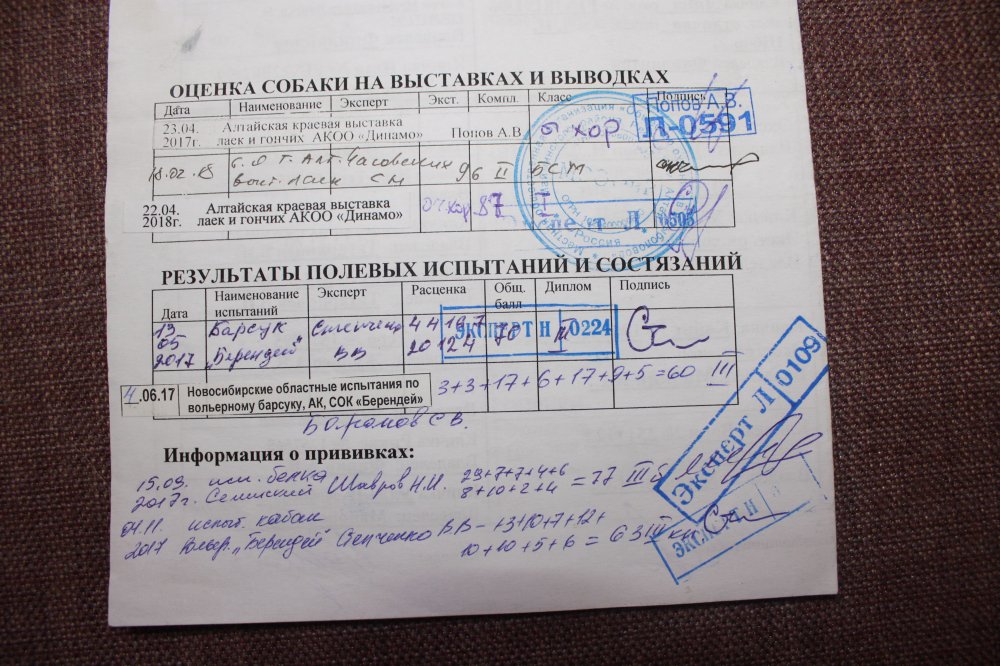 ОЦЕНКА СОБАКИ НА ВЫСТАВКАХ И ВЫВОДКАХ
Дата Наименование Эксперт Экст. Компл. Класс Подпись
23.04. Алтайская краевая выставка
2017г. лаек и гончих АКОО «Динамо» Попов А.В оч хор
Попов А.В.
Л-0591
18.02.18
выст. лаек СМ 96 II БСМ
22.04. Алтайская краевая выставка
2018г. лаек и гончих АКОО «Динамо» оч хор 87 II
Л 0505
Россия
РЕЗУЛЬТАТЫ ПОЛЕВЫХ ИСПЫТАНИЙ И СОСТЯЗАНИЙ
Дата Наименование испытаний Эксперт Расценка Общ. балл Диплом Подпись
13 Барсук
05
2017 "Берендей" ВВ
ЭКСПЕРТ Н 0224
4.06.17 Новосибирские областные испытания по
вольерному барсуку, АК, СОК «Берендей»
3+3+17+6+17+9+5=60 III
Информация о прививках:
15.09. исп. белка
2017г. Семинский Шавров Н.И. 29+7+7+4+6
8+10+2+4 = 77 III б
04.11. испыт. кабан
2017 вольер. "Берендей" Степченко ВВ - +3+10+7+12+
10+10+5+6 = 63 III
Эксперт Л 0109
ЭКСПЕРТ Н